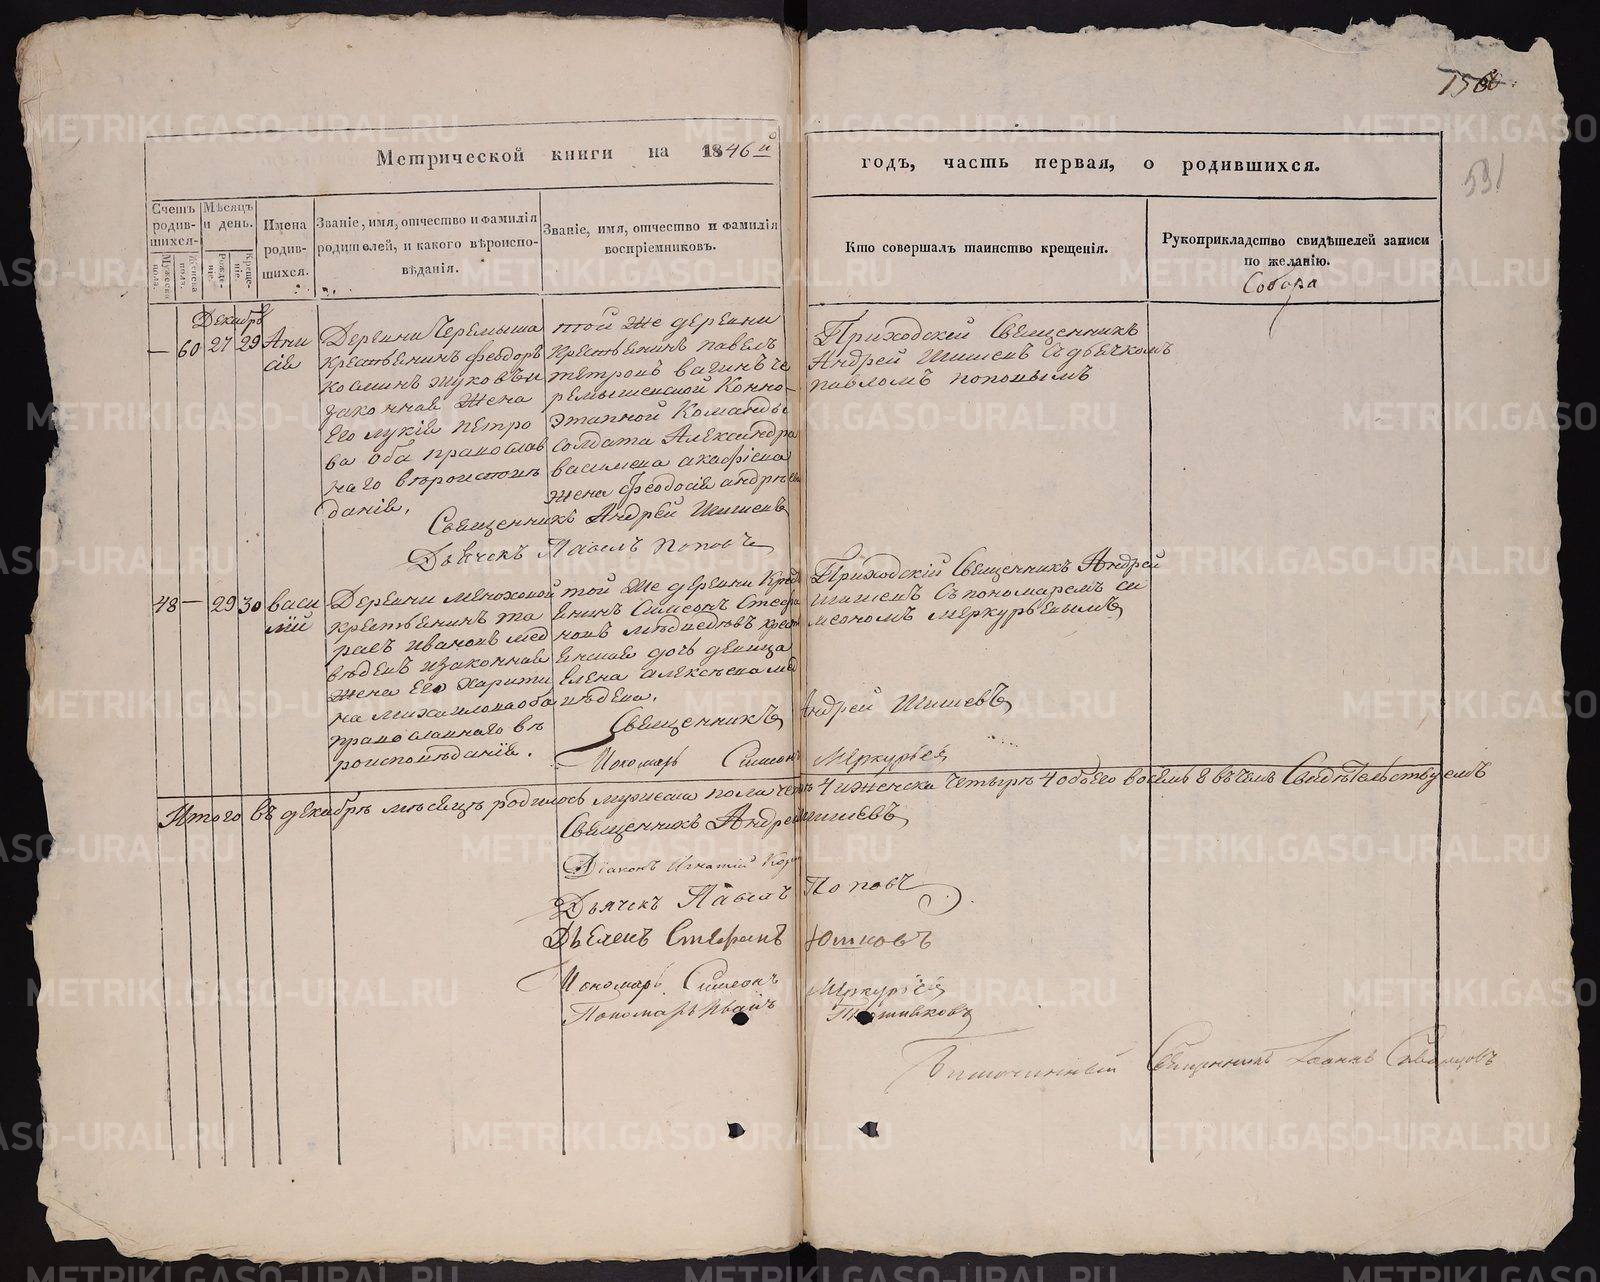 Метрической книги на 1846й
годъ, часть первая, о родившихся.
531
Счетъ родив-шихся.
Мѣсяцъ и день.
Имена родив-шихся.
Званіе, имя, отчество и фамилія родителей, и какого вѣроиспо-вѣданія.
Званіе, имя, отчество и фамилія воспріемниковъ.
Кто совершалъ таинство крещенія.
Рукоприкладство свидѣтелей записи по желанію.
Мужеска пола.
Женска пола.
Рожде-ніе.
Креще-ніе.
Декабрь
— 60 27 29
Ани
сія
Деревни Черемыша
крестьянинъ Феодоръ
Косминъ Жуковъ и
законная жена
Его Лукія Петро
ва оба православ
наго вѣроисповѣ
данія.
той же деревни
крестьянинъ Павелъ
Петровъ Вагинъ Че
ремышенской Конно-
этапной Команды
солдата Александра
жена Феодосія Андрѣева
Приходскій Священникъ
Андрей Шишевъ съ дьячкомъ
Павломъ Поповымъ
Священникъ Андрей Шишевъ
Дьячекъ Павелъ Поповъ
48 — 29 30
Васи
лій
крестьянинъ
Ивановъ Мед
вѣдевъ и законная
жена Его Харити
на Михайлова оба
православнаго вѣ
роисповѣданія.
той же деревни Крес
янинъ Симеонъ Стефа
новъ Мѣдведѣвъ крест
янская дочь девица
Елена Алексѣева Ме
вѣдева.
Приходскій Священникъ Андрей
Шишевъ съ пономаремъ Си
меономъ Меркурьевымъ
Священникъ Андрей Шишевъ
Пономарь Симеонъ Меркурьев
Итого въ декабрѣ мѣсяцѣ родилось мужеска пола четыре 4 женска четырѣ 4 обоего восемь 8 въ чемъ Свидѣтельствуемъ
Священникъ Андрей Шишевъ
Діаконъ Игнатій
Дьячекъ Павелъ Поповъ
Дьячекъ Стефанъ Юшковъ
Пономарь Симеонъ Меркурьев
Пономарь Иванъ Плотниковъ
Благочинный Священникъ Іоаннъ
METRIKI.GASO-URAL.RU